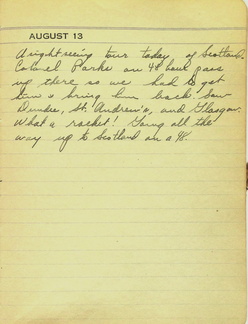 AUGUST 13
A sightseeing tour today of Scotland.
Colonel Parks on 48 hour pass
up there so we had to get
him & bring him back. Saw
Dundee, St. Andrew's, and Glasgow.
What a racket! Going all the
way up to Scotland on a 48.